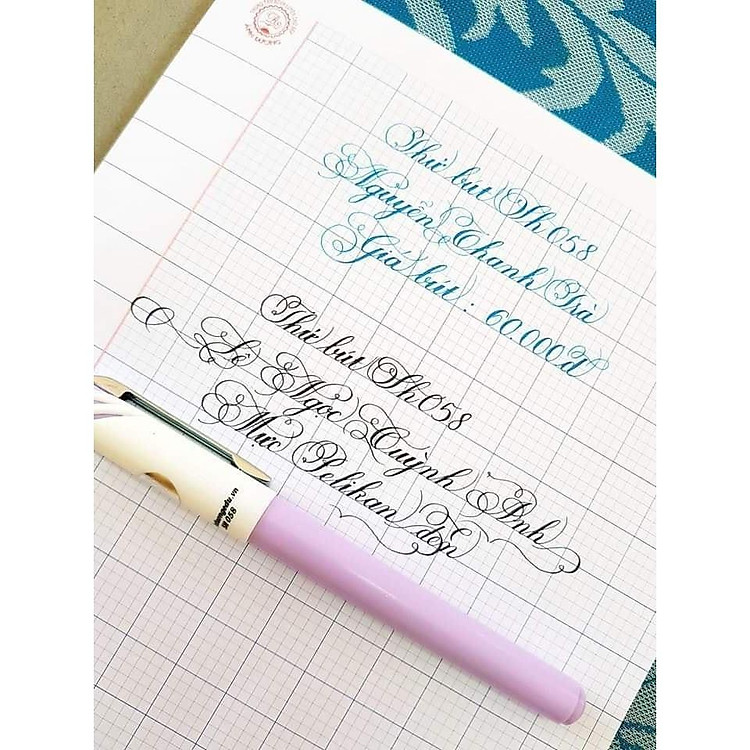 Thử bút Sh 058
Nguyễn Thanh Trà
Giá bút : 60.000đ
Thử bút Sh 058
Lê Ngọc Quỳnh Ảnh
Mực Pelikan đen
SH 058